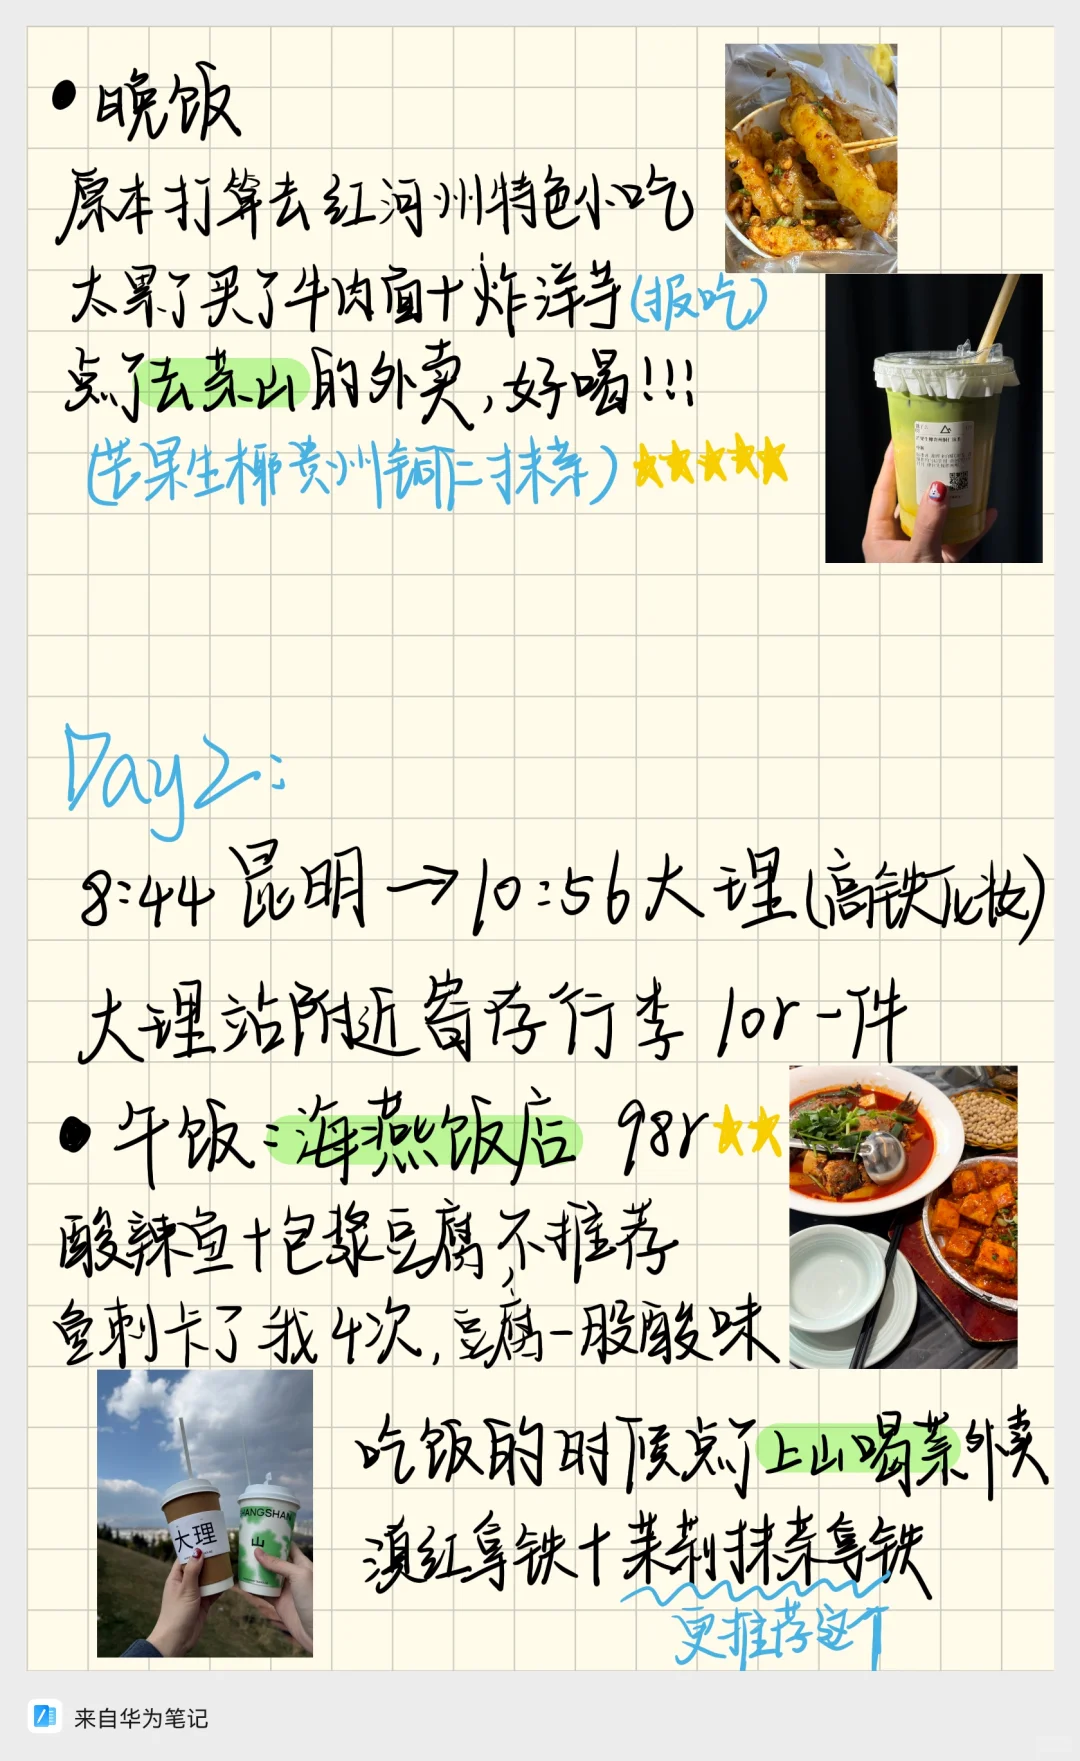 •晚饭
原本打算去红河州特色小吃
太累了买了牛肉面+炸洋芋(报吃)
点了去茶山的外卖,好喝!!!
(芒果生椰贵州铜仁抹茶)
Day2:
8:44昆明→10:56大理(高铁化妆)
大理站附近寄存行李 10r一件
•午饭:海燕饭店 98r
酸辣鱼+包浆豆腐,不推荐
鱼刺卡了我4次,豆腐一股酸味
大理
SHANGSHAN
山
吃饭的时候点了上山喝茶外卖
滇红拿铁+茉莉抹茶拿铁
更推荐这个
来自华为笔记